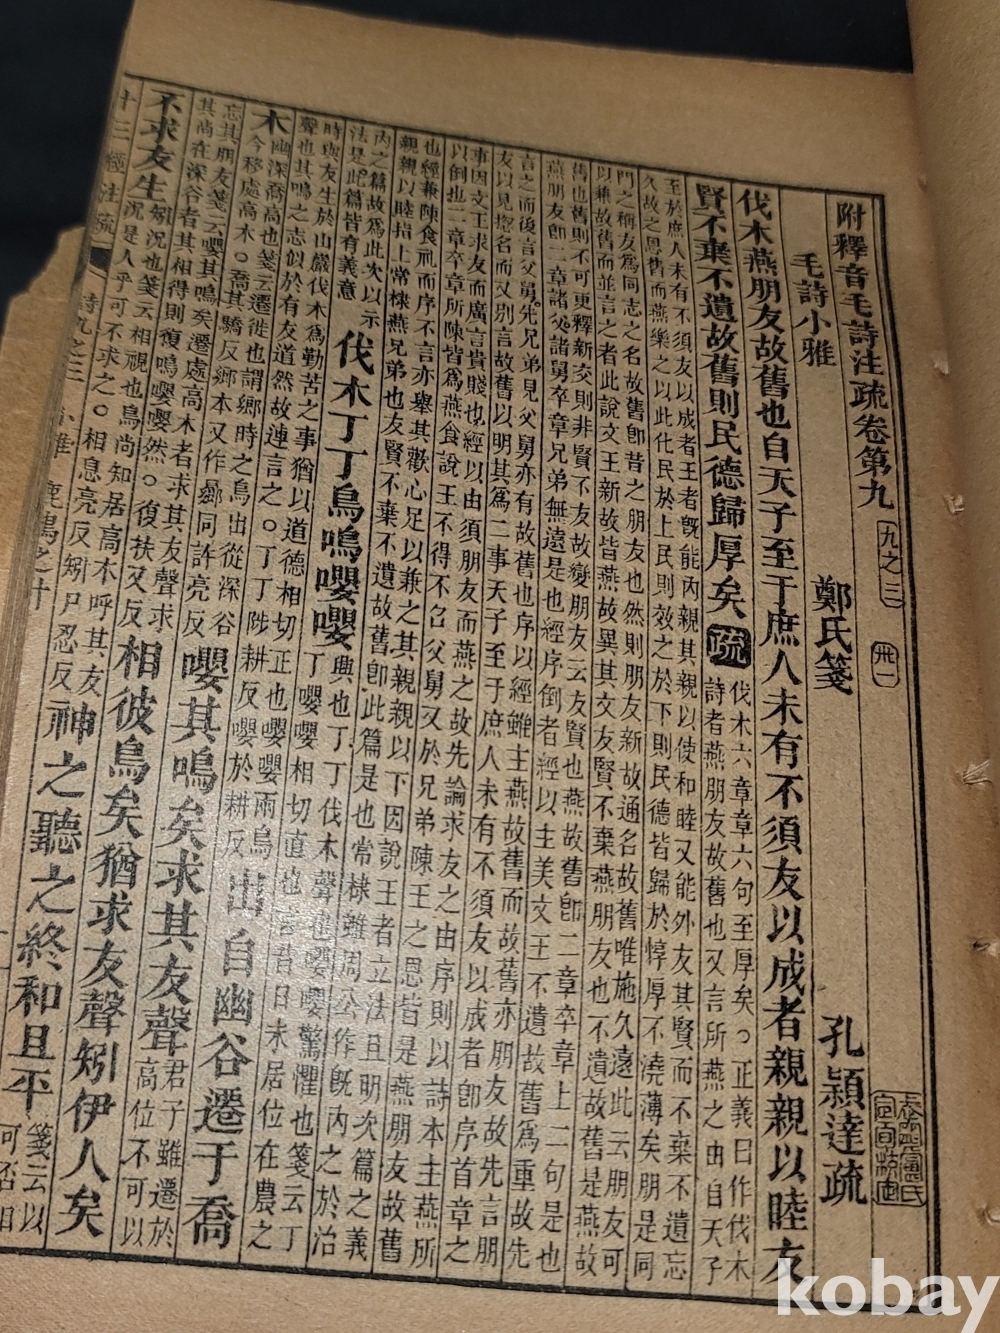 附釋音毛詩注疏卷第九 九之三 卅一
毛詩小雅 鄭氏箋 孔穎達疏
伐木燕朋友故舊也自天子至于庶人未有不須友以成者親親以睦友
賢不棄不遺故舊則民德歸厚矣 疏 伐木六章章六句至厚矣○正義曰作伐木
詩者燕朋友故舊也又言所燕之由自天子
至於庶人未有不須友以成者王者既能內親其親以使和睦又能外友其賢而不棄不遺忘
久故之恩舊而燕樂之以此化民於上民則效之於下則民德皆歸於惇厚不澆薄矣朋是同
門之稱友為同志之名故舊即昔之朋友也然則朋友新故通名故舊唯施久遠此云朋友可
以兼故舊而並言之者此說文王新故皆燕故異其文友賢不棄燕朋友也不遺故舊是燕故
舊也舊則不可更釋新交則非賢不友故變朋友云友賢也燕故舊即二章卒章上二句是也
燕朋友即二章諸父諸舅卒章兄弟無遠是也經序倒者經以主美文王不遺故舊為重故先
言之而後言父舅先兄弟見父舅亦有故舊也序以經雖主燕故舊而故舊亦朋友故先言朋
友以見揔名而又別言故舊以明其為二事天子至于庶人未有不須友以成者即序首章之
事因文王求友而廣言貴賤也經以由須朋友而燕之故先論求友之由序則以詩本主燕所
以倒也二章卒章所陳皆為燕食說王不得不召父舅又於兄弟陳王之恩皆是燕朋友故舊
也經兼陳食禮而序不言亦舉其歡心足以兼之其親親以下因說王者立法且明次篇之義
親親以睦指上常棣燕兄弟也友賢不棄不遺故舊即此篇是也常棣雖周公作既內之於治
內之篇故為此次以示
法是此篇皆有義意 伐木丁丁鳥鳴嚶嚶 興也丁丁伐木聲也嚶嚶驚懼也箋云丁
丁嚶嚶相切直也言昔日未居位在農之
時與友生於山巖伐木為勤苦之事猶以道德相切正也嚶嚶兩鳥
聲也其鳴之志似於有友道然故連言之○丁丁陟耕反嚶於耕反 出自幽谷遷于喬
木 幽深喬高也箋云遷徙也謂鄉時之鳥出從深谷
今移處高木○喬其驕反鄉本又作曏同許亮反 嚶其鳴矣求其友聲 君子雖遷於
高位不可以
忘其朋友箋云嚶其鳴矣遷處高木者求其友聲求
其尚在深谷者其相得則復鳴嚶嚶然○復扶又反 相彼鳥矣猶求友聲矧伊人矣
不求友生 矧況也箋云相視也鳥尚知居高木呼其友
況是人乎可不求之○相息亮反矧尸忍反 神之聽之終和且平 箋云以
可否相
十三經注疏 詩九之三 小雅 鹿鳴之什
kobay